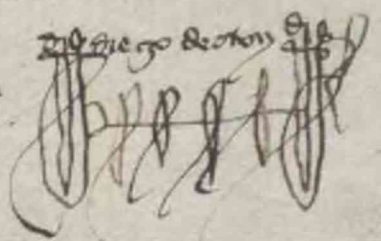 diego de oton